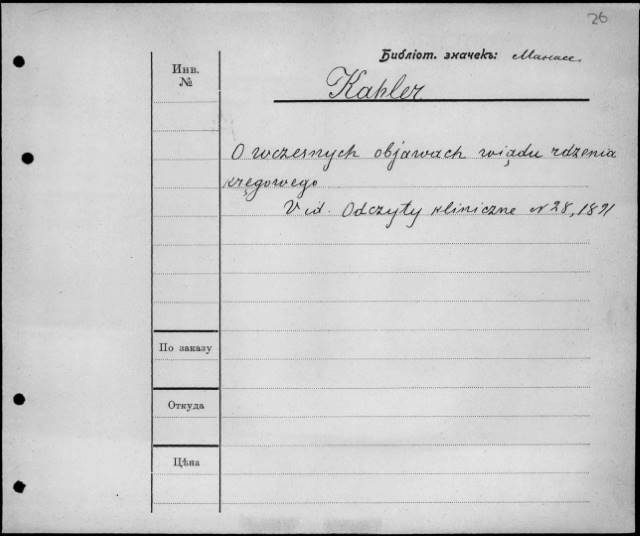 26
Библіот. значекъ: Манасс.
Инв.
№
Kahler
O wczesnych objawach wiądu rdzenia
krzęgowego
Vid. Odczyty kliniczne N 28, 1891
По заказу
Откуда
Цѣна